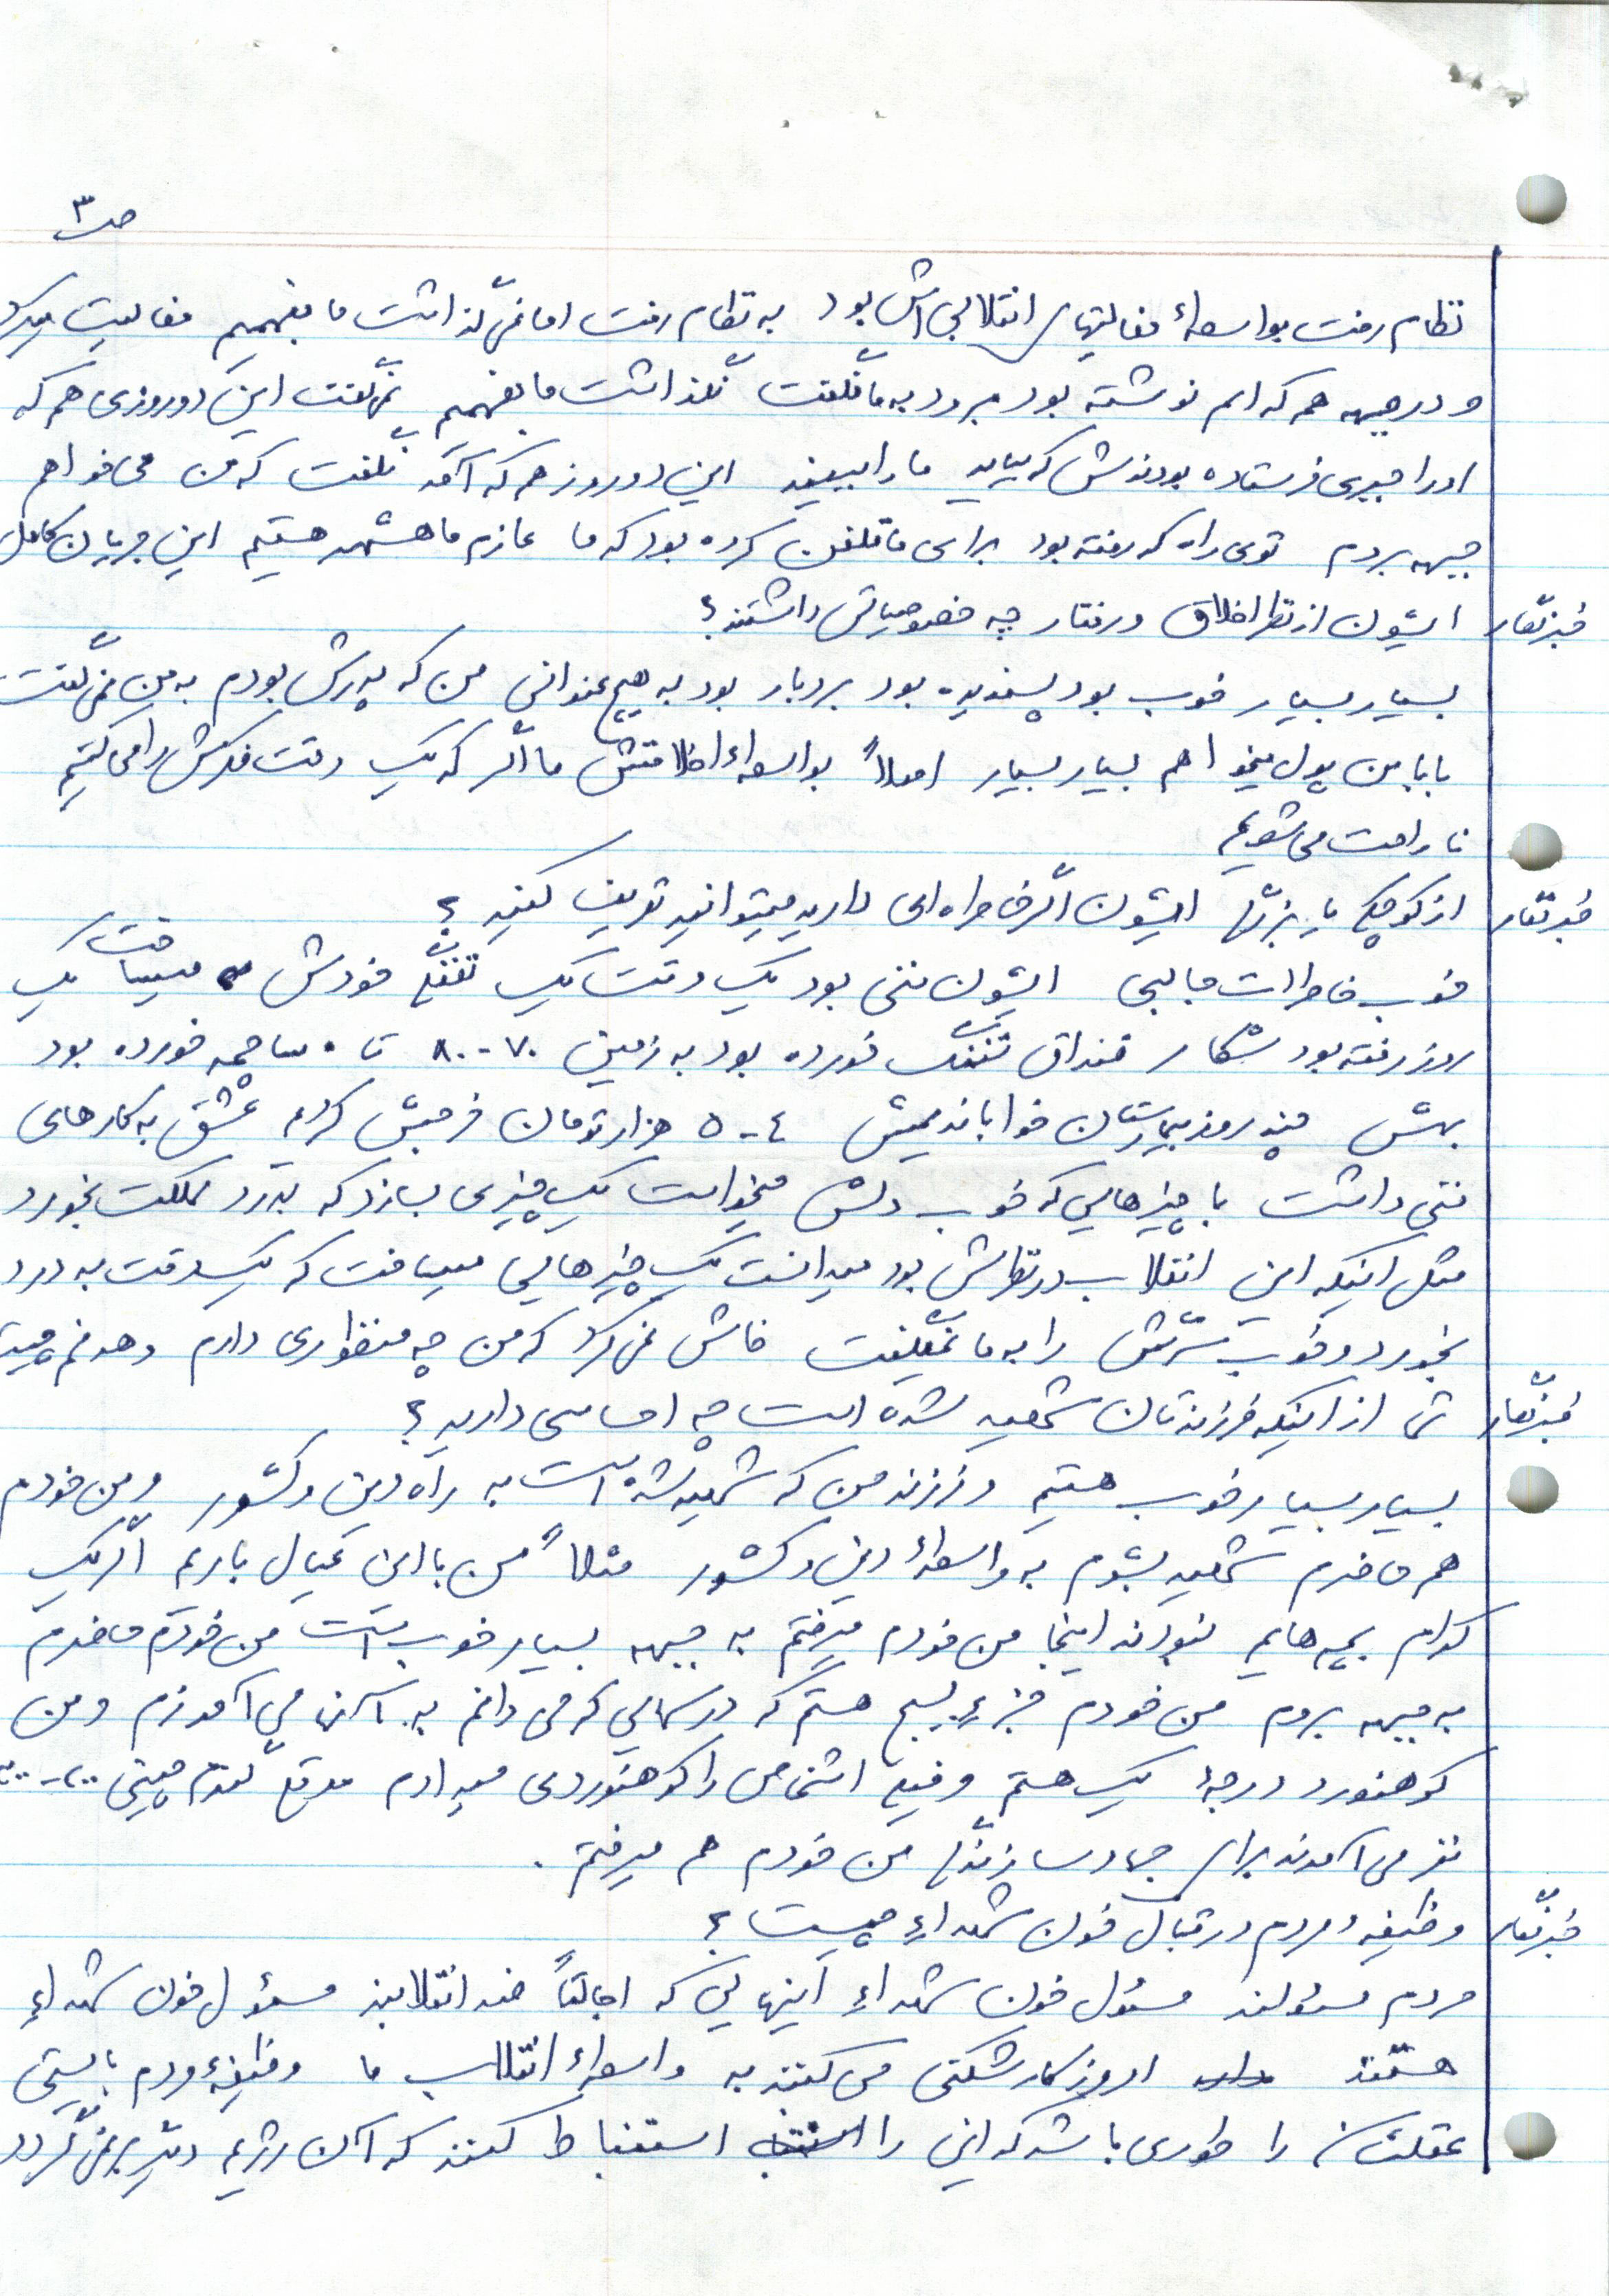 ص ۳
نظام رفت بواسطهٔ فعالیتهای انقلابی اش بود به نظام رفت اما نمی گذاشت ما بفهمیم فعالیت میکرد
و در جبهه هم که اسم نوشته بود میرود به ما نگفت نگذاشت ما بفهمیم نمی گفت این دو روزی هم که
او را جبری فرستاده بودندش که بیاید ما را ببیند این دو روز هم که آمد نگفت که من می خواهم
جبهه بروم توی راه که رفته بود برای ما تلفن کرده بود که ما عازم ماهشهر هستیم این جریان کامل
خبرنگار ایشون از نظر اخلاق و رفتار چه خصوصیاتی داشتند؟
بسیار بسیار خوب بود پسندیده بود بردبار بود به هیچ عنوانی من که پدرش بودم به من نمی گفت
بابا من پول میخواهم بسیار بسیار اصلاً بواسطهٔ اخلاقش ما اگر که یک وقت فکرش را می کنیم
ناراحت می شویم
خبرنگار از کوچکی یا بزرگی ایشون اگر خاطره ای دارید میتوانید تعریف کنید؟
خوب خاطرات جالبی ایشون فنی بود یک وقت یک تفنگی خودش میساخت یک
روز رفته بود شکار قنداق تفنگ خورده بود به زمین ۷۰-۸۰ تا ساچمه خورده بود
بهش چند روز بیمارستان خواباندیمش ۴-۵ هزار تومان خرجش کردیم عشق به کارهای
فنی داشت با چیزهایی که خوب دلش میخواست یک چیزی بسازد که بدرد مملکت بخورد
مثل اینکه این انقلاب در نظرش بود میدانست یک چیزهایی میساخت که یک وقت به درد
بخورد و خوب سرّش را به ما نمیگفت فاش نمی کرد که من چه منظوری دارم و هدفم چیست
خبرنگار شما از اینکه فرزندتان شهید شده است چه احساسی دارید؟
بسیار بسیار خوب هستیم و فرزند من که شهید شده است به راه دین و کشور و من خودم
هم حاضرم شهید بشوم به واسطهٔ دین و کشور مثلاً من با این عیال باریم اگر یک
کدام بچه هایم نبودند اینجا من خودم میرفتم به جبهه بسیار خوب است من خودم حاضرم
به جبهه بروم من خودم جزء بسیج هستم که درسهایی که می دانم به آنها می آموزم و من
کوهنورد درجهٔ یک هستم و خیلی اشخاص را کوهنوردی میدادم موقع گندم چینی
نفر می آمدند برای جهاد سازندگی من خودم هم میرفتم.
خبرنگار وظیفه مردم در قبال خون شهداء چیست؟
مردم مسئولند مسئول خون شهداء اینهایی که اجالتاً ضد انقلابند مسئول خون شهداء
هستند امروز کارشکنی می کنند به واسطهٔ انقلاب ما وظیفهٔ مردم بایستی
عقلشان را طوری باشد که این را استنباط کنند که آن رژیم دیگر برنمی گردد